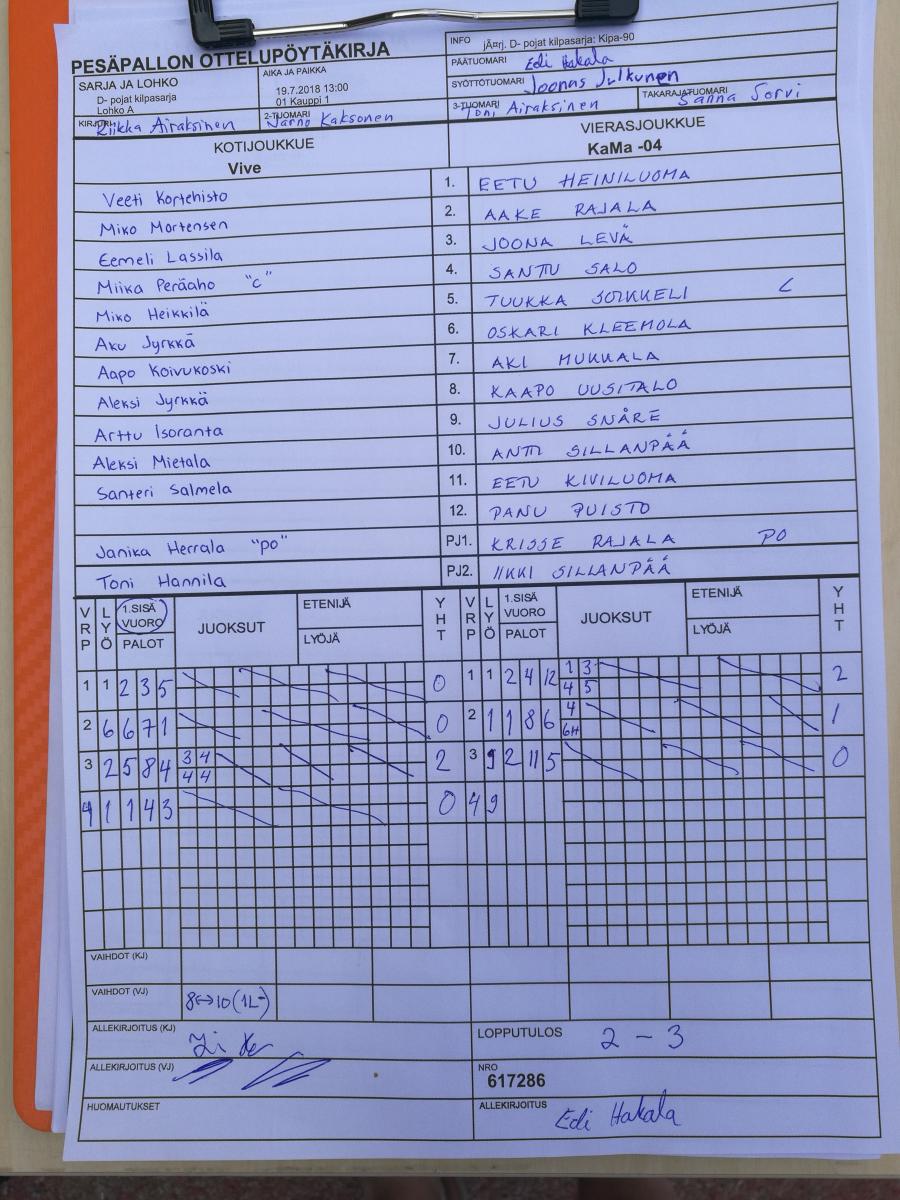 PESÄPALLON OTTELUPÖYTÄKIRJA
INFO jĀ¤rj. D- pojat kilpasarja: Kipa-90
PÄÄTUOMARI Edi Hakala
SYÖTTÖTUOMARI Joonas Julkunen
SARJA JA LOHKO
D- pojat kilpasarja
Lohko A
AIKA JA PAIKKA
19.7.2018 13:00
01 Kauppi 1
3-TUOMARI Toni Airaksinen TAKARAJATUOMARI Sanna Sorvi
KIRJURI Riikka Airaksinen 2-TUOMARI Jarno Kaksonen
KOTIJOUKKUE VIERASJOUKKUE
Vive KaMa -04
Veeti Kortehisto 1. EETU HEINILUOMA
Miko Mortensen 2. AAKE RAJALA
Eemeli Lassila 3. JOONA LEVÄ
Miika Peräaho "c" 4. SANTTU SALO
Miko Heikkilä 5. TUUKKA SOIKKELI C
Aku Jyrkkä 6. OSKARI KLEEMOLA
Aapo Koivukoski 7. AKI MUKKALA
Aleksi Jyrkkä 8. KAAPO UUSITALO
Arttu Isoranta 9. JULIUS SNÅRE
Aleksi Mietala 10. ANTTI SILLANPÄÄ
Santeri Salmela 11. EETU KIVILUOMA
12. PANU PUISTO
Janika Herrala "po" PJ1. KRISSE RAJALA PO
Toni Hannila PJ2. IIKKI SILLANPÄÄ
VRP LYÖ 1.SISÄ VUORO PALOT JUOKSUT ETENIJÄ LYÖJÄ YHT VRP LYÖ 1.SISÄ VUORO PALOT JUOKSUT ETENIJÄ LYÖJÄ YHT
1 1 2 3 5 0 1 1 2 4 12 1 3 2
4 5
2 6 6 7 1 0 2 1 1 8 6 4 1
6H
3 2 5 8 4 3 4 2 3 9 2 11 5 0
4 4
4 1 1 4 3 0 4 9
VAIHDOT (KJ)
VAIHDOT (VJ) 8↔10 (1L-)
ALLEKIRJOITUS (KJ) LOPPUTULOS 2 - 3
ALLEKIRJOITUS (VJ) NRO
617286
HUOMAUTUKSET ALLEKIRJOITUS Edi Hakala